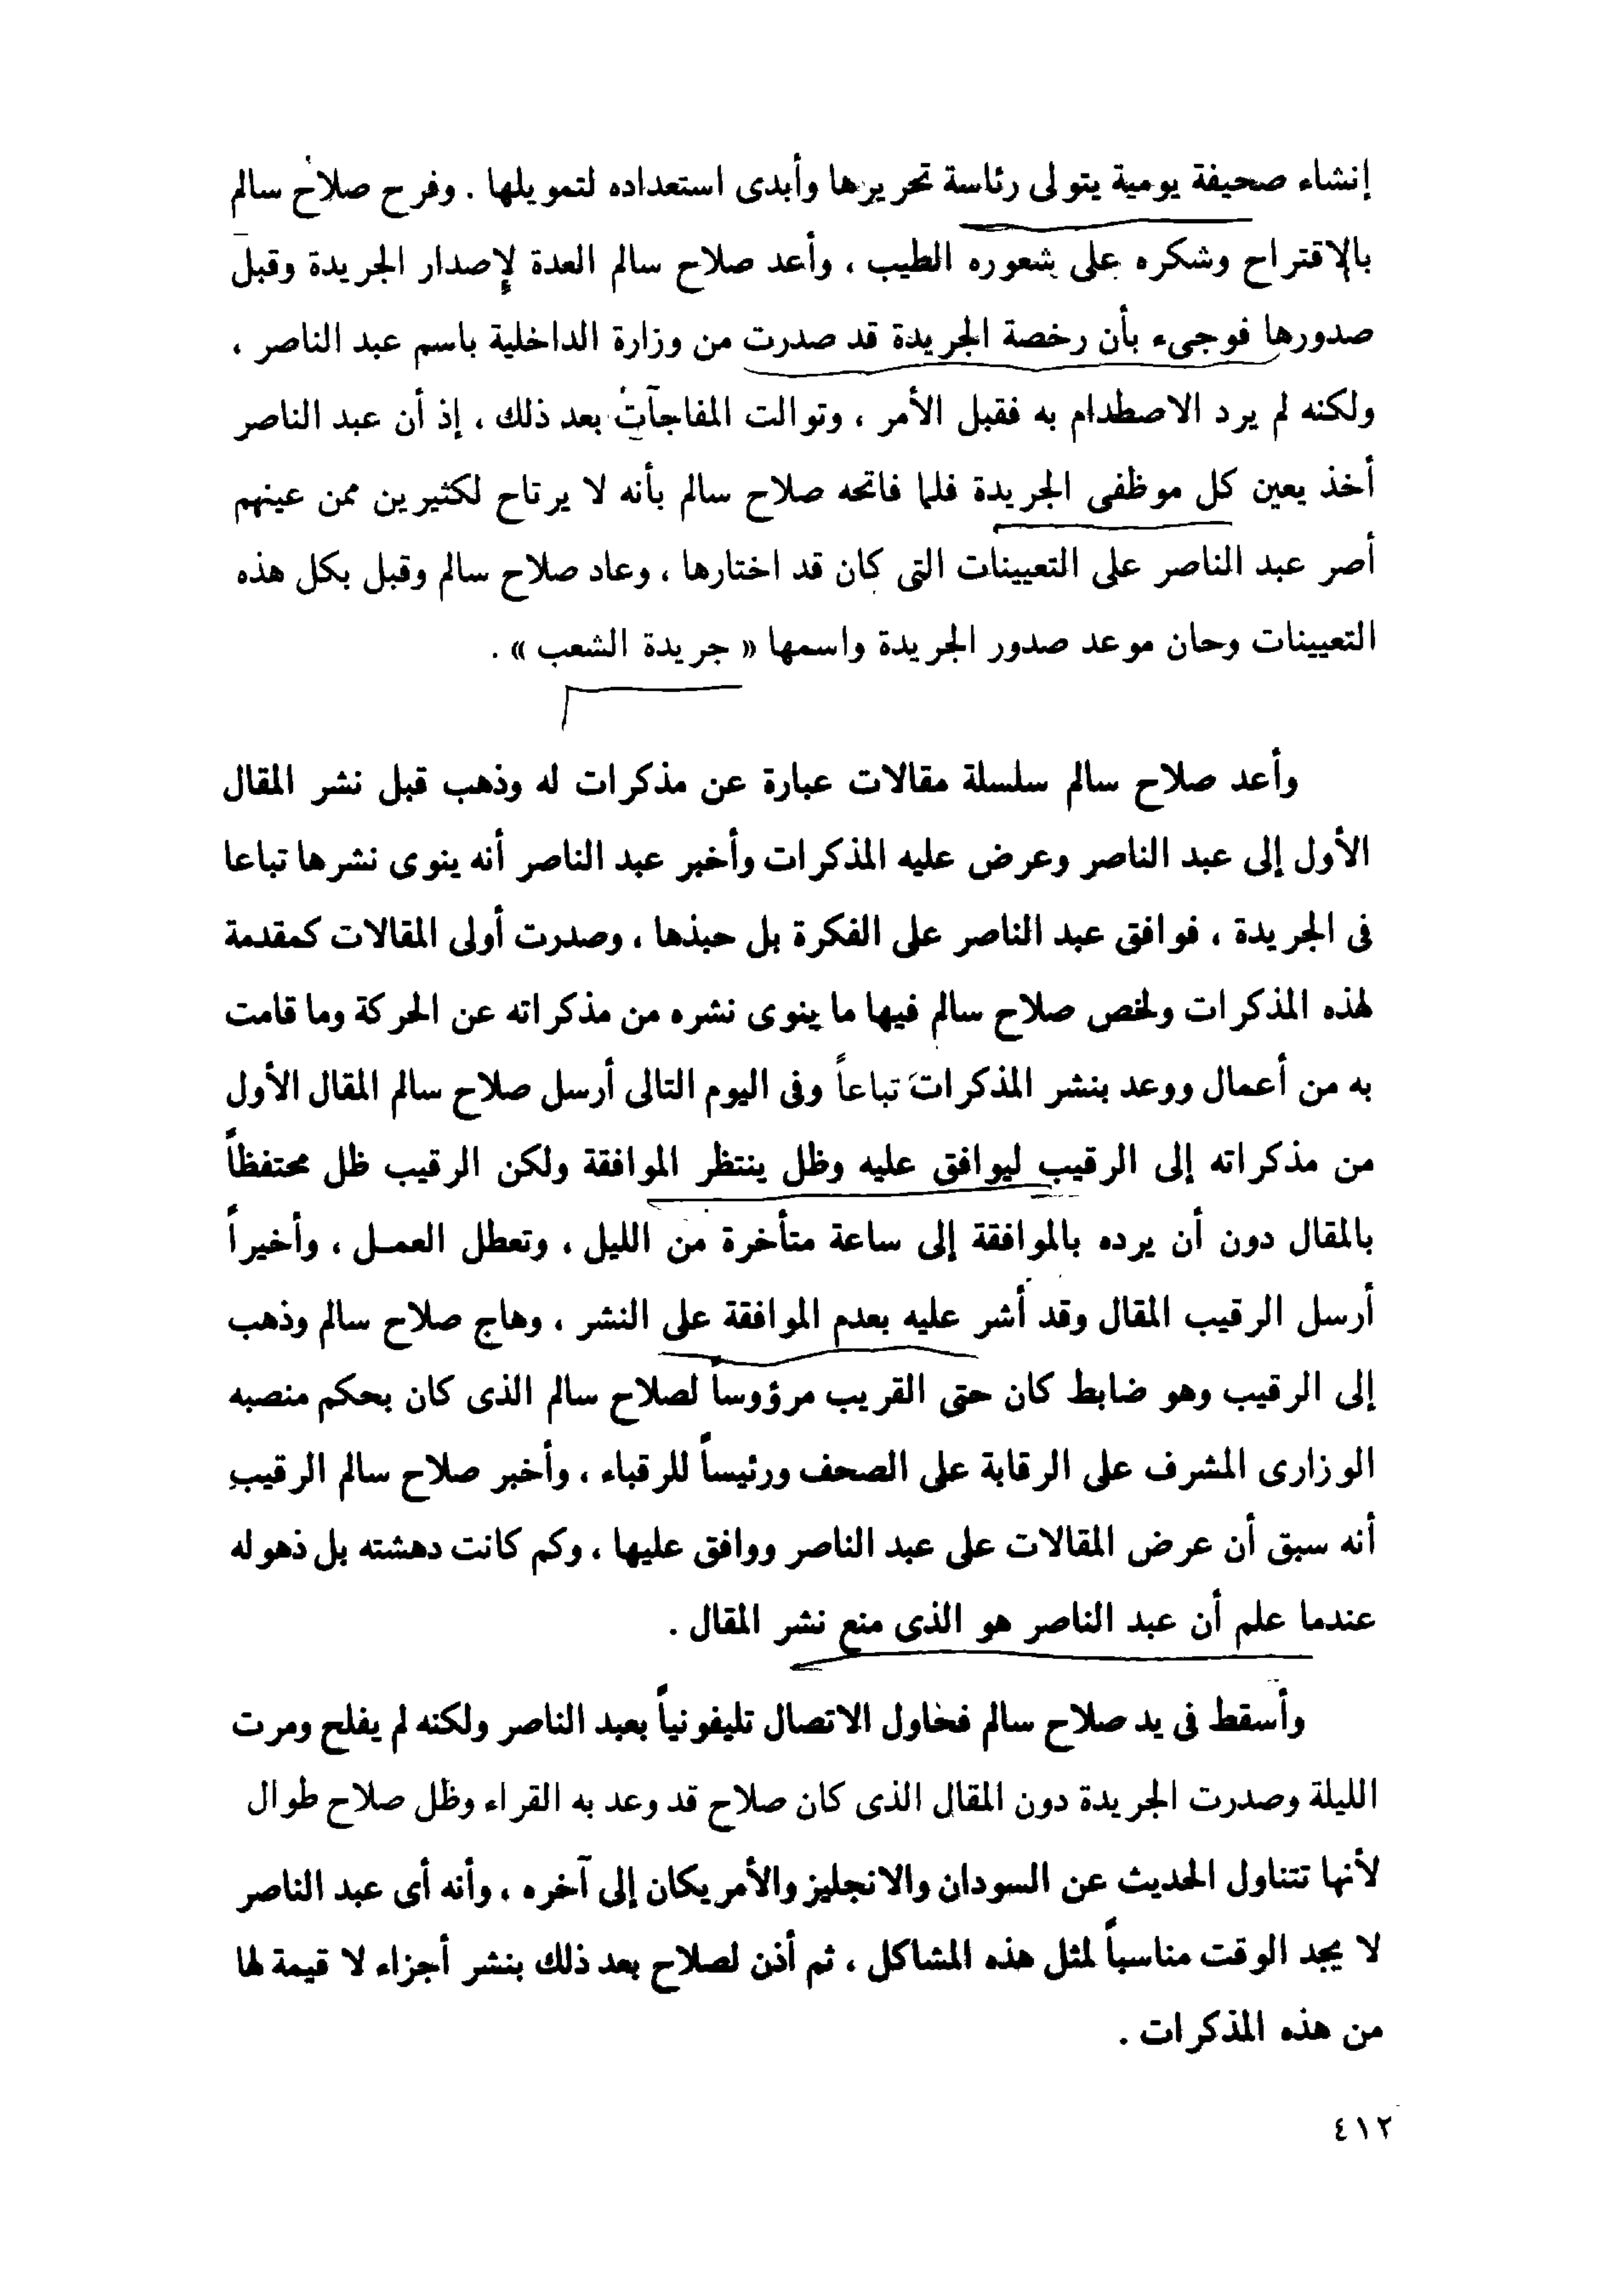 إنشاء صحيفة يومية يتولى رئاسة تحريرها وأبدى استعداده لتمويلها . وفرح صلاح سالم
بالاقتراح وشكره على شعوره الطيب ، وأعد صلاح سالم العدة لإصدار الجريدة وقبل
صدورها فوجىء بأن رخصة الجريدة قد صدرت من وزارة الداخلية باسم عبد الناصر ،
ولكنه لم يرد الاصطدام به فقبل الأمر ، وتوالت المفاجآت بعد ذلك ، إذ أن عبد الناصر
أخذ يعين كل موظفى الجريدة فلما فاتحه صلاح سالم بأنه لا يرتاح لكثيرين ممن عينهم
أصر عبد الناصر على التعيينات التى كان قد اختارها ، وعاد صلاح سالم وقبل بكل هذه
التعيينات وحان موعد صدور الجريدة واسمها « جريدة الشعب » .
وأعد صلاح سالم سلسلة مقالات عبارة عن مذكرات له وذهب قبل نشر المقال
الأول إلى عبد الناصر وعرض عليه المذكرات وأخبر عبد الناصر أنه ينوى نشرها تباعا
فى الجريدة ، فوافق عبد الناصر على الفكرة بل حبذها ، وصدرت أولى المقالات كمقدمة
لهذه المذكرات ولخص صلاح سالم فيها ما ينوى نشره من مذكراته عن الحركة وما قامت
به من أعمال ووعد بنشر المذكرات تباعاً وفى اليوم التالى أرسل صلاح سالم المقال الأول
من مذكراته إلى الرقيب ليوافق عليه وظل ينتظر الموافقة ولكن الرقيب ظل محتفظاً
بالمقال دون أن يرده بالموافقة إلى ساعة متأخرة من الليل ، وتعطل العمل ، وأخيراً
أرسل الرقيب المقال وقد أشر عليه بعدم الموافقة على النشر ، وهاج صلاح سالم وذهب
إلى الرقيب وهو ضابط كان حتى القريب مرؤوساً لصلاح سالم الذى كان بحكم منصبه
الوزارى المشرف على الرقابة على الصحف ورئيساً للرقباء ، وأخبر صلاح سالم الرقيب
أنه سبق أن عرض المقالات على عبد الناصر ووافق عليها ، وكم كانت دهشته بل ذهوله
عندما علم أن عبد الناصر هو الذى منع نشر المقال .
وأسقط فى يد صلاح سالم فحاول الاتصال تليفونياً بعبد الناصر ولكنه لم يفلح ومرت
الليلة وصدرت الجريدة دون المقال الذى كان صلاح قد وعد به القراء وظل صلاح طوال
لأنها تتناول الحديث عن السودان والانجليز والأمريكان إلى آخره ، وأنه أى عبد الناصر
لا يجد الوقت مناسباً لمثل هذه المشاكل ، ثم أذن لصلاح بعد ذلك بنشر أجزاء لا قيمة لها
من هذه المذكرات .
٤١٢